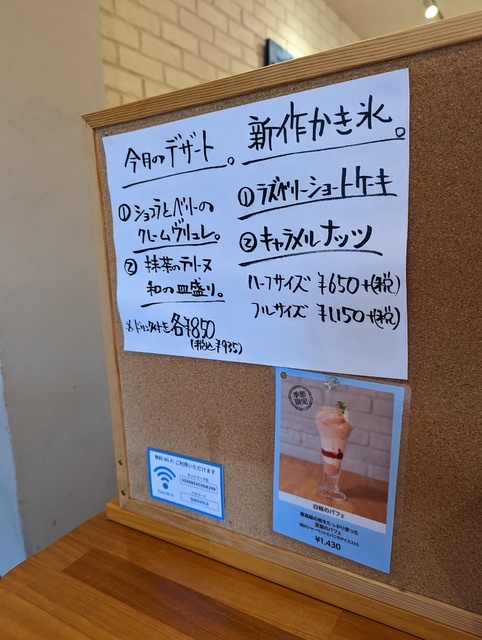 今月のデザート。
① ショコラとベリーの
クレームブリュレ。
② 抹茶のテリーヌ
和の皿盛り。
各¥850
(税込¥935)
新作かき氷。
① ラズベリーショートケーキ
② キャラメルナッツ
ハーフサイズ ¥650+(税)
フルサイズ ¥1150+(税)
無料Wi-Fiご利用いただけます
Free Wi-Fi
ネットワーク名
パスワード
季節
限定
白桃のパフェ
至福のパフェ
¥1,430